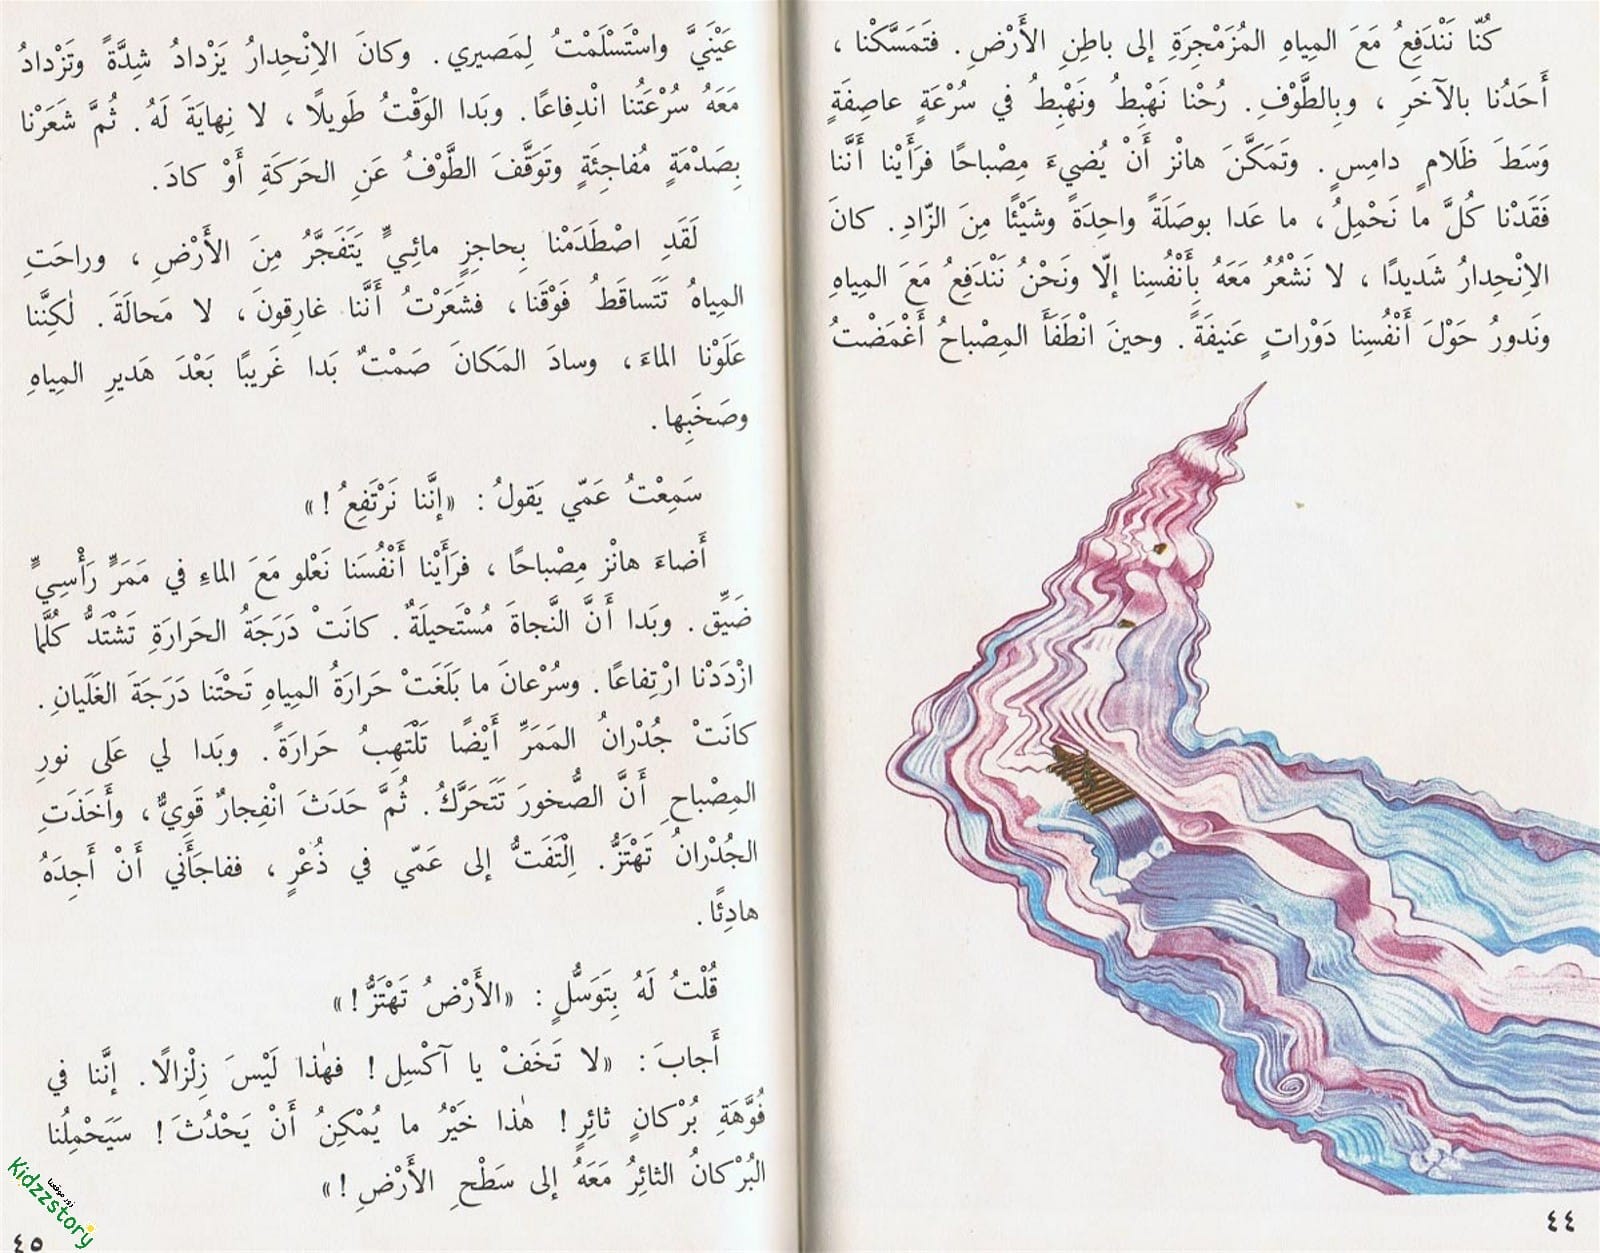 كُنّا نَنْدَفِعُ مَعَ المِياهِ المُزَمْجِرَةِ إلى باطِنِ الأَرْضِ. فتَمَسَّكْنا ،
أَحَدُنا بالآخَرِ ، وبِالطَّوْفِ. رُحْنا نَهْبِطُ ونَهْبِطُ في سُرْعَةٍ عاصِفَةٍ
وَسَطَ ظَلامٍ دامِسٍ. وتَمَكَّنَ هانْز أَنْ يُضيءَ مِصْباحًا فرَأَيْنا أَنَّنا
فَقَدْنا كُلَّ ما نَحْمِلُ، ما عَدا بوصَلَةً واحِدَةً وشَيْئًا مِنَ الزّادِ. كانَ
الاِنْحِدارُ شَديدًا ، لا نَشْعُرُ مَعَهُ بِأَنْفُسِنا إلّا ونَحْنُ نَنْدَفِعُ مَعَ المِياهِ
ونَدورُ حَوْلَ أَنْفُسِنا دَوْراتٍ عَنيفَةً. وحينَ انْطَفَأَ المِصْباحُ أَغْمَضْتُ
٤٤
عَيْنَيَّ واسْتَسْلَمْتُ لِمَصيري. وكانَ الاِنْحِدارُ يَزْدادُ شِدَّةً وتَزْدادُ
مَعَهُ سُرْعَتُنا انْدِفاعًا. وبَدا الوَقْتُ طَويلًا ، لا نِهايَةَ لَهُ. ثُمَّ شَعَرْنا
بِصَدْمَةٍ مُفاجِئَةٍ وتَوَقَّفَ الطَّوْفُ عَنِ الحَرَكَةِ أَوْ كادَ.
لَقَدِ اصْطَدَمْنا بِحاجِزٍ مائِيٍّ يَتَفَجَّرُ مِنَ الأَرْضِ ، وراحَتِ
المِياهُ تَتَساقَطُ فَوْقَنا ، فشَعَرْتُ أَنَّنا غارِقونَ ، لا مَحالَةَ. لٰكِنَّنا
عَلَوْنا الماءَ ، وسادَ المَكانَ صَمْتٌ بَدا غَريبًا بَعْدَ هَديرِ المِياهِ
وصَخَبِها.
سَمِعْتُ عَمّي يَقولُ: «إنَّنا نَرْتَفِعُ!»
أَضاءَ هانْز مِصْباحًا ، فرَأَيْنا أَنْفُسَنا نَعْلو مَعَ الماءِ في مَمَرٍّ رَأْسِيٍّ
ضَيِّق. وبَدا أَنَّ النَّجاةَ مُسْتَحيلَةٌ. كانَتْ دَرَجَةُ الحَرارَةِ تَشْتَدُّ كُلَّما
ازْدَدْنا ارْتِفاعًا. وسُرْعانَ ما بَلَغَتْ حَرارَةُ المِياهِ تَحْتَنا دَرَجَةَ الغَلَيانِ.
كانَتْ جُدْرانُ المَمَرِّ أَيْضًا تَلْتَهِبُ حَرارَةً. وبَدا لي عَلى نورِ
المِصْباحِ أَنَّ الصُّخورَ تَتَحَرَّكُ. ثُمَّ حَدَثَ انْفِجارٌ قَوِيٌّ ، وأَخَذَتِ
الجُدْرانُ تَهْتَزُّ. اِلْتَفَتُّ إلى عَمّي في ذُعْرٍ ، ففاجَأَني أَنْ أَجِدَهُ
هادِئًا.
قُلْتُ لَهُ بِتَوَسُّلٍ: «الأَرْضُ تَهْتَزُّ!»
أَجابَ: «لا تَخَفْ يا آكْسِل! فهٰذا لَيْسَ زِلْزالًا. إنَّنا في
فُوَّهَةِ بُرْكانٍ ثائِرٍ! هٰذا خَيْرُ ما يُمْكِنُ أَنْ يَحْدُثَ! سَيَحْمِلُنا
البُرْكانُ الثائِرُ مَعَهُ إلى سَطْحِ الأَرْضِ!»
زور موقعنا
Kidzzstory
٤٥